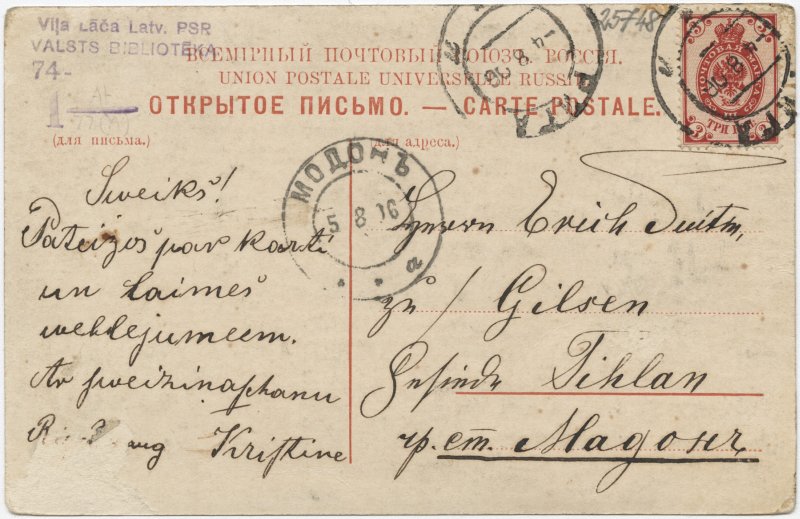 Viļa Lāča Latv. PSR
VALSTS BIBLIOTĒKA
74-
1
25748
ВСЕМІРНЫЙ ПОЧТОВЫЙ СОЮЗЪ. РОССІЯ.
UNION POSTALE UNIVERSELLE RUSSIE
ОТКРЫТОЕ ПИСЬМО. — CARTE POSTALE.
(для письма.)
(для адреса.)
РИГА
4 8 06
ПОЧТОВАЯ МАРКА
3
ТРИ КОП
МОДОНЪ
5 8 06
а
Sweiks!
Pateizos par karti
un laimes
wehlejumeem.
Ar sweizinaschanu
Kristine
Herrn Erich
zu / Gilsen
Gesinde Tihlan
ст. Мадонъ